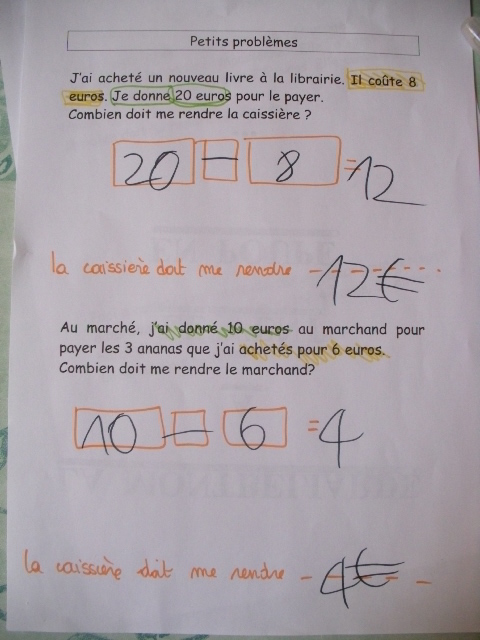 Petits problèmes
J'ai acheté un nouveau livre à la librairie. Il coûte 8
euros. Je donne 20 euros pour le payer.
Combien doit me rendre la caissière ?
20 - 8 = 12
la caissière doit me rendre 12€
Au marché, j'ai donné 10 euros au marchand pour
payer les 3 ananas que j'ai achetés pour 6 euros.
Combien doit me rendre le marchand?
10 - 6 = 4
la caissière doit me rendre 4€